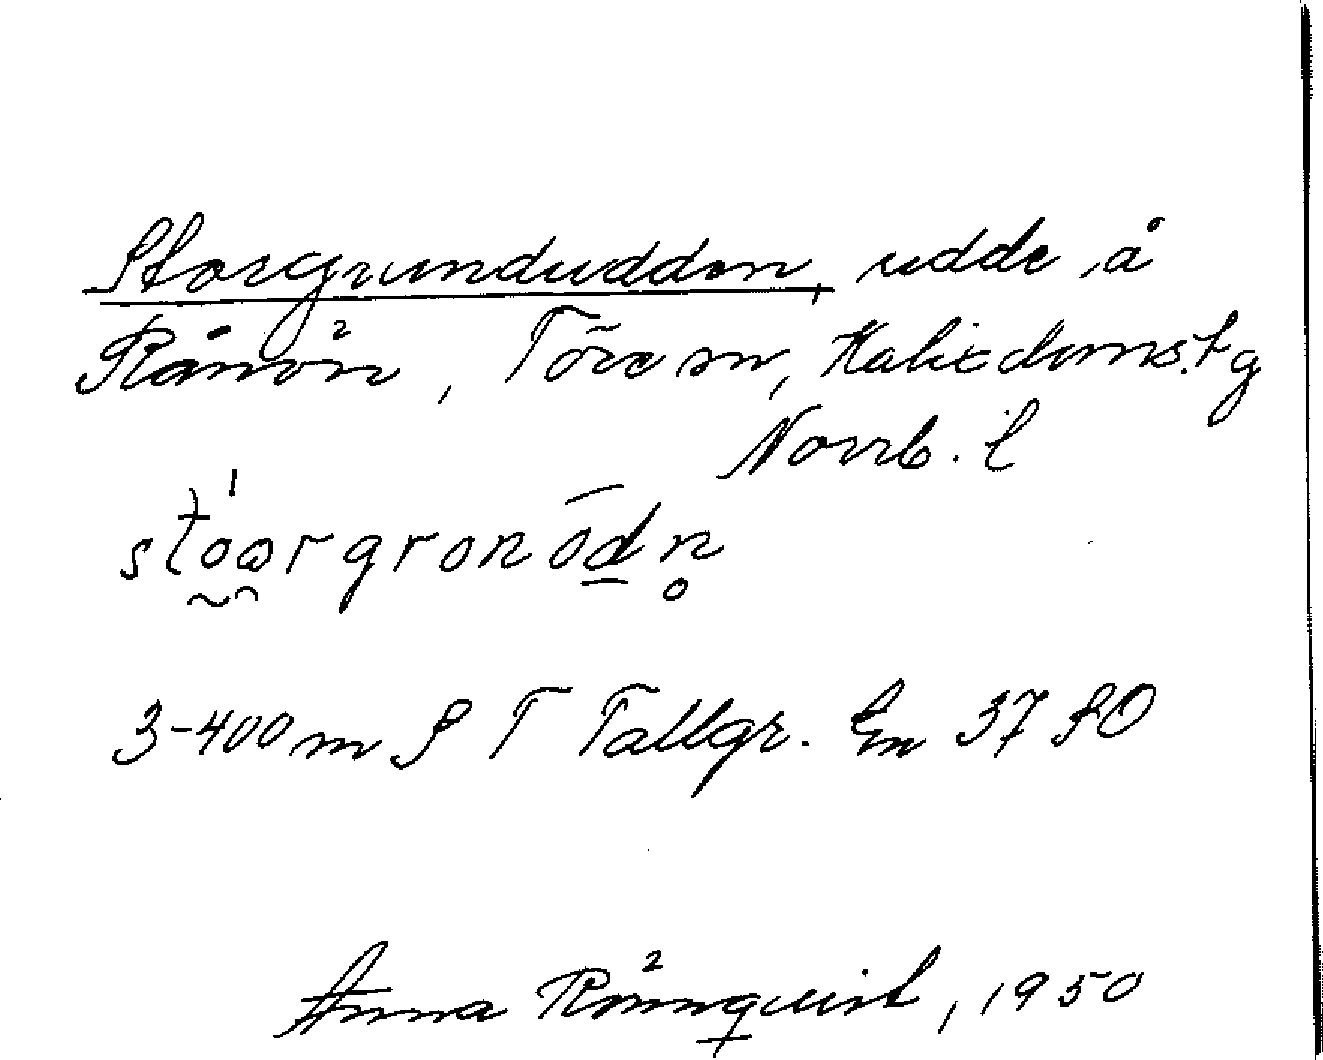 Storgrundudden, udde å
Rånön, Töre sn, Kalix domst g
Norrb. l
stóərgronōdn̥
3-400 m S T Tallgr. En 37 SO
Anna Rönnquist, 1950